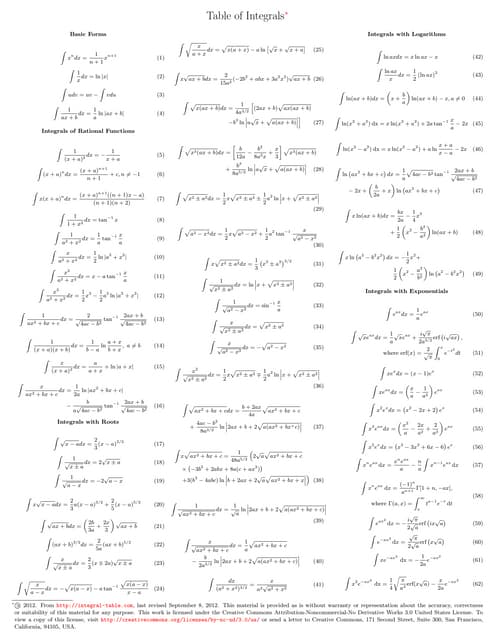 Table of Integrals*
Basic Forms
∫ xⁿ dx = 1/(n+1) xⁿ⁺¹ (1)
∫ 1/x dx = ln |x| (2)
∫ u dv = uv − ∫ v du (3)
∫ 1/(ax + b) dx = 1/a ln |ax + b| (4)
Integrals of Rational Functions
∫ 1/(x + a)² dx = − 1/(x + a) (5)
∫ (x + a)ⁿ dx = (x + a)ⁿ⁺¹/(n + 1) + c, n ≠ −1 (6)
∫ x(x + a)ⁿ dx = (x + a)ⁿ⁺¹((n + 1)x − a)/((n + 1)(n + 2)) (7)
∫ 1/(1 + x²) dx = tan⁻¹ x (8)
∫ 1/(a² + x²) dx = 1/a tan⁻¹ x/a (9)
∫ x/(a² + x²) dx = 1/2 ln |a² + x²| (10)
∫ x²/(a² + x²) dx = x − a tan⁻¹ x/a (11)
∫ x³/(a² + x²) dx = 1/2 x² − 1/2 a² ln |a² + x²| (12)
∫ 1/(ax² + bx + c) dx = 2/√(4ac − b²) tan⁻¹ (2ax + b)/√(4ac − b²) (13)
∫ 1/((x + a)(x + b)) dx = 1/(b − a) ln (a + x)/(b + x), a ≠ b (14)
∫ x/(x + a)² dx = a/(a + x) + ln |a + x| (15)
∫ x/(ax² + bx + c) dx = 1/2a ln |ax² + bx + c|
− b/(a√(4ac − b²)) tan⁻¹ (2ax + b)/√(4ac − b²) (16)
Integrals with Roots
∫ √(x − a) dx = 2/3 (x − a)^(3/2) (17)
∫ 1/√(x ± a) dx = 2√(x ± a) (18)
∫ 1/√(a − x) dx = −2√(a − x) (19)
∫ x√(x − a) dx = 2/3 a(x − a)^(3/2) + 2/5 (x − a)^(5/2) (20)
∫ √(ax + b) dx = (2b/3a + 2x/3) √(ax + b) (21)
∫ (ax + b)^(3/2) dx = 2/5a (ax + b)^(5/2) (22)
∫ x/√(x ± a) dx = 2/3 (x ∓ 2a)√(x ± a) (23)
∫ √(x/(a − x)) dx = −√(x(a − x)) − a tan⁻¹ √(x(a − x))/(x − a) (24)
∫ √(x/(a + x)) dx = √(x(a + x)) − a ln [√x + √(x + a)] (25)
∫ x√(ax + b) dx = 2/15a² (−2b² + abx + 3a²x²)√(ax + b) (26)
∫ √(x(ax + b)) dx = 1/4a^(3/2) [(2ax + b)√(ax(ax + b))
−b² ln |a√x + √(a(ax + b))|] (27)
∫ √(x³(ax + b)) dx = [b/12a − b²/8a²x + x/3] √(x³(ax + b))
+ b³/8a^(5/2) ln |a√x + √(a(ax + b))| (28)
∫ √(x² ± a²) dx = 1/2 x√(x² ± a²) ± 1/2 a² ln |x + √(x² ± a²)|
(29)
∫ √(a² − x²) dx = 1/2 x√(a² − x²) + 1/2 a² tan⁻¹ x/√(a² − x²)
(30)
∫ x√(x² ± a²) dx = 1/3 (x² ± a²)^(3/2) (31)
∫ 1/√(x² ± a²) dx = ln |x + √(x² ± a²)| (32)
∫ 1/√(a² − x²) dx = sin⁻¹ x/a (33)
∫ x/√(x² ± a²) dx = √(x² ± a²) (34)
∫ x/√(a² − x²) dx = −√(a² − x²) (35)
∫ x²/√(x² ± a²) dx = 1/2 x√(x² ± a²) ∓ 1/2 a² ln |x + √(x² ± a²)|
(36)
∫ √(ax² + bx + c) dx = (b + 2ax)/4a √(ax² + bx + c)
+ (4ac − b²)/8a^(3/2) ln |2ax + b + 2√(a(ax² + bx + c))| (37)
∫ x√(ax² + bx + c) = 1/48a^(5/2) (2√a √(ax² + bx + c)
× (−3b² + 2abx + 8a(c + ax²))
+3(b³ − 4abc) ln |b + 2ax + 2√a √(ax² + bx + c)|) (38)
∫ 1/√(ax² + bx + c) dx = 1/√a ln |2ax + b + 2√(a(ax² + bx + c))|
(39)
∫ x/√(ax² + bx + c) dx = 1/a √(ax² + bx + c)
− b/2a^(3/2) ln |2ax + b + 2√(a(ax² + bx + c))| (40)
∫ dx/(a² + x²)^(3/2) = x/(a²√(a² + x²)) (41)
Integrals with Logarithms
∫ ln ax dx = x ln ax − x (42)
∫ ln ax/x dx = 1/2 (ln ax)² (43)
∫ ln(ax + b) dx = (x + b/a) ln(ax + b) − x, a ≠ 0 (44)
∫ ln(x² + a²) dx = x ln(x² + a²) + 2a tan⁻¹ x/a − 2x (45)
∫ ln(x² − a²) dx = x ln(x² − a²) + a ln (x + a)/(x − a) − 2x (46)
∫ ln (ax² + bx + c) dx = 1/a √(4ac − b²) tan⁻¹ (2ax + b)/√(4ac − b²)
− 2x + (b/2a + x) ln (ax² + bx + c) (47)
∫ x ln(ax + b) dx = bx/2a − 1/4 x²
+ 1/2 (x² − b²/a²) ln(ax + b) (48)
∫ x ln (a² − b²x²) dx = −1/2 x² +
1/2 (x² − a²/b²) ln (a² − b²x²) (49)
Integrals with Exponentials
∫ e^(ax) dx = 1/a e^(ax) (50)
∫ √x e^(ax) dx = 1/a √x e^(ax) + i√π/2a^(3/2) erf (i√(ax)),
where erf(x) = 2/√π ∫₀ˣ e^(−t²) dt (51)
∫ xeˣ dx = (x − 1)eˣ (52)
∫ xe^(ax) dx = (x/a − 1/a²) e^(ax) (53)
∫ x²eˣ dx = (x² − 2x + 2) eˣ (54)
∫ x²e^(ax) dx = (x²/a − 2x/a² + 2/a³) e^(ax) (55)
∫ x³eˣ dx = (x³ − 3x² + 6x − 6) eˣ (56)
∫ xⁿe^(ax) dx = xⁿe^(ax)/a − n/a ∫ xⁿ⁻¹e^(ax) dx (57)
∫ xⁿe^(ax) dx = (−1)ⁿ/aⁿ⁺¹ Γ[1 + n, −ax],
where Γ(a, x) = ∫ₓ^∞ t^(a−1)e^(−t) dt (58)
∫ e^(ax²) dx = − i√π/2√a erf (ix√a) (59)
∫ e^(−ax²) dx = √π/2√a erf (x√a) (60)
∫ xe^(−ax²) dx = − 1/2a e^(−ax²) (61)
∫ x²e^(−ax²) dx = 1/4 √(π/a³) erf(x√a) − x/2a e^(−ax²) (62)
*© 2012. From http://integral-table.com, last revised September 8, 2012. This material is provided as is without warranty or representation about the accuracy, correctness
or suitability of this material for any purpose. This work is licensed under the Creative Commons Attribution-Noncommercial-No Derivative Works 3.0 United States License. To
view a copy of this license, visit http://creativecommons.org/licenses/by-nc-nd/3.0/us/ or send a letter to Creative Commons, 171 Second Street, Suite 300, San Francisco,
California, 94105, USA.